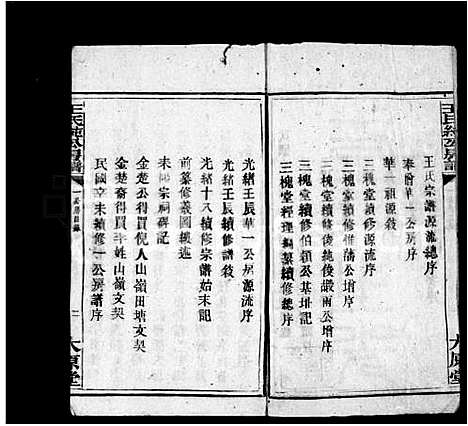 王氏宗譜源流總序
華一公序
華一祖源序
三槐堂續修源流序
三槐堂續修惟蒲公增序
三槐堂續修後純後嚴兩公增序
三槐堂續修伯穎公基址記
三槐堂經理編纂續修總序
光緒壬辰華一公房源流序
光緒壬辰續修譜敘
光緒十八續修宗譜始末記
前纂修義圖續述
宗祠碑記
金楚公得買倪人山嶺田塘文契
金楚裔得買姓山嶺文契
民國辛未續修一公房譜序
王氏純公房譜
二
太原堂